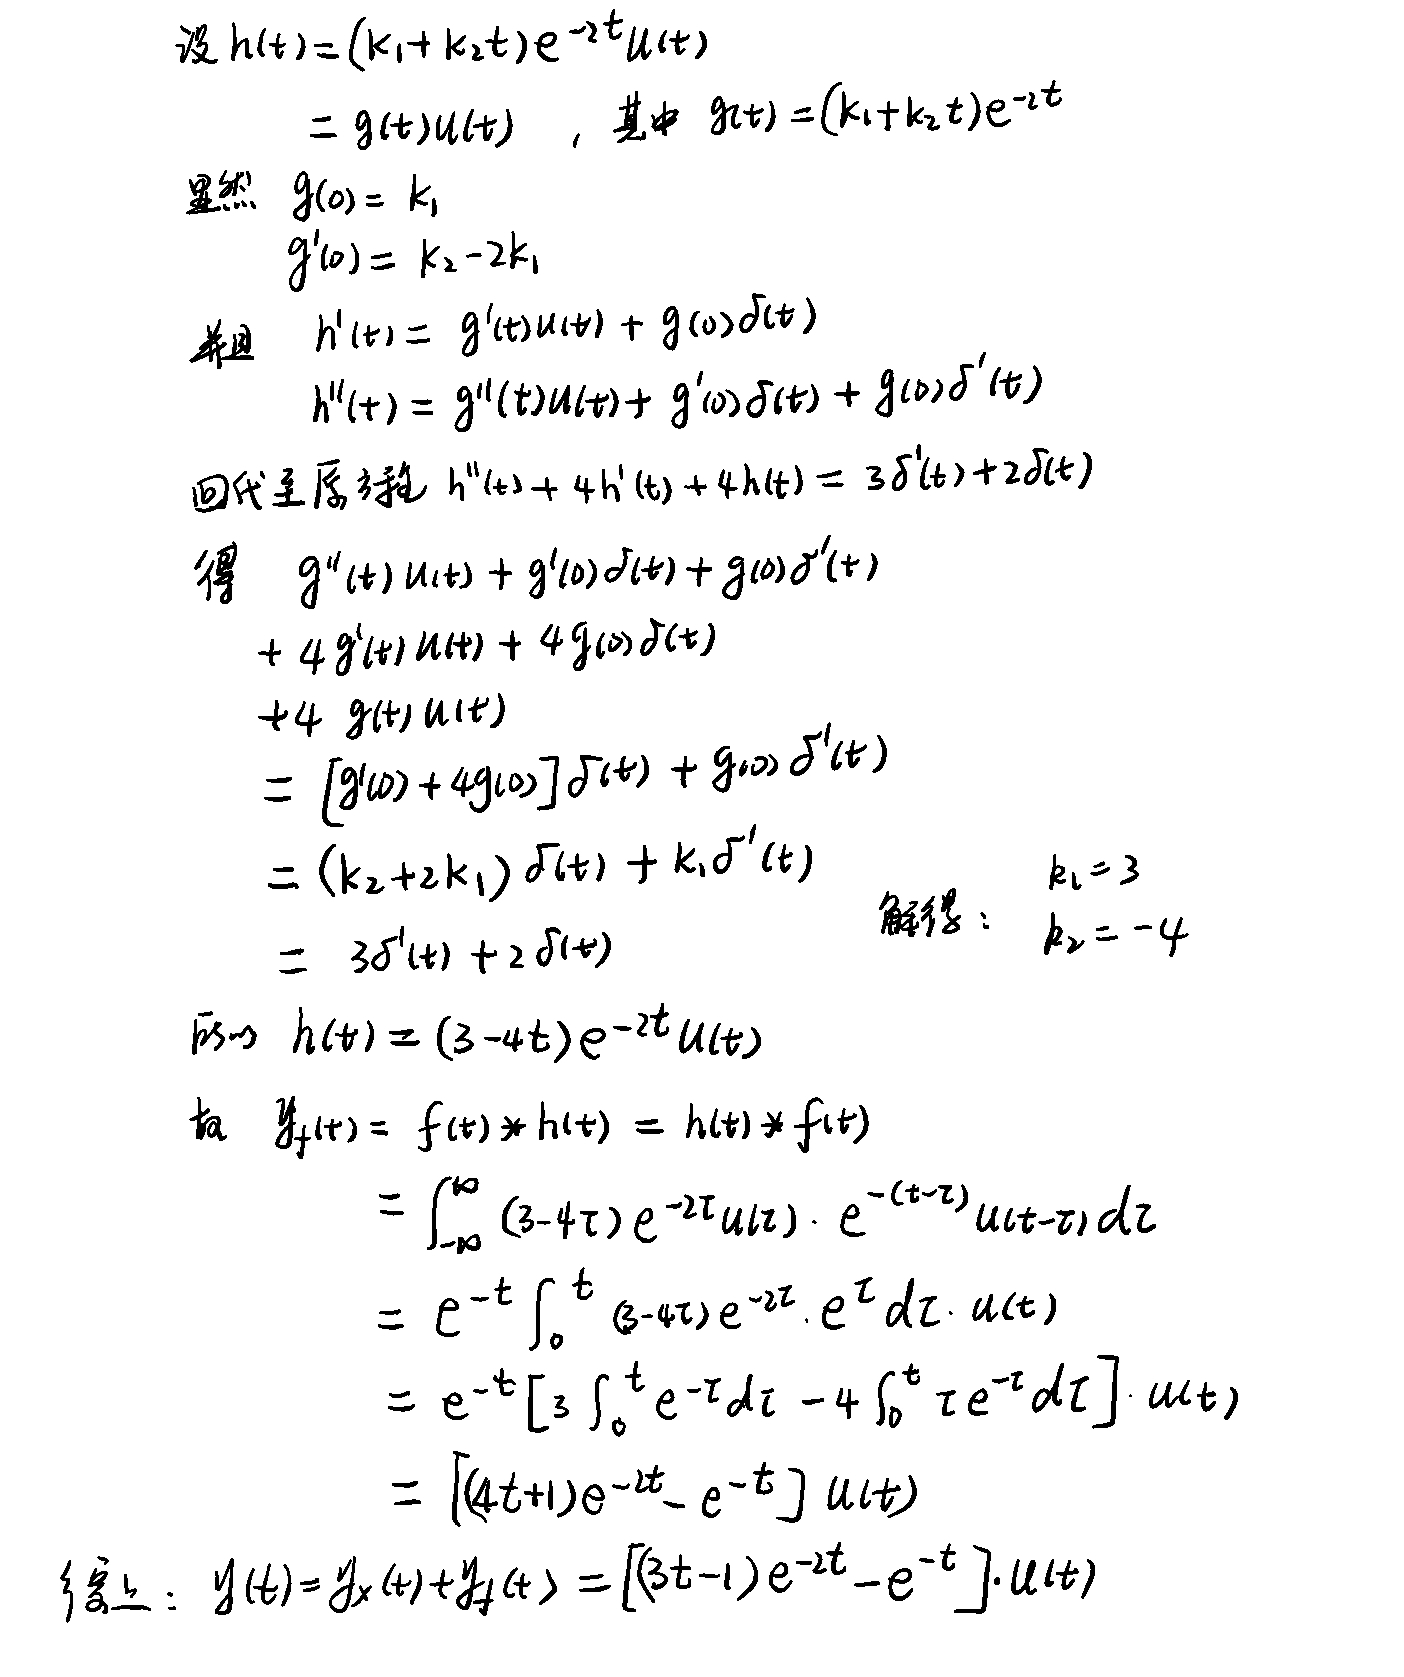 设 h(t)=(k₁+k₂t)e^{-2t}u(t)
=g(t)u(t) , 其中 g(t)=(k₁+k₂t)e^{-2t}
显然 g(0)=k₁
g'(0)=k₂-2k₁
并且 h'(t)=g'(t)u(t)+g(0)δ(t)
h''(t)=g''(t)u(t)+g'(0)δ(t)+g(0)δ'(t)
回代至原方程 h''(t)+4h'(t)+4h(t)=3δ'(t)+2δ(t)
得 g''(t)u(t)+g'(0)δ(t)+g(0)δ'(t)
+4g'(t)u(t)+4g(0)δ(t)
+4 g(t)u(t)
=[g'(0)+4g(0)]δ(t)+g(0)δ'(t)
=(k₂+2k₁)δ(t)+k₁δ'(t)
=3δ'(t)+2δ(t)
解得: k₁=3
k₂=-4
所以 h(t)=(3-4t)e^{-2t}u(t)
故 y_f(t)=f(t)*h(t)=h(t)*f(t)
=∫_{-∞}^{∞}(3-4τ)e^{-2τ}u(τ)·e^{-(t-τ)}u(t-τ)dτ
=e^{-t}∫_0^t(3-4τ)e^{-2τ}·e^{τ}dτ·u(t)
=e^{-t}[3∫_0^t e^{-τ}dτ-4∫_0^t τe^{-τ}dτ]·u(t)
=[(4t+1)e^{-2t}-e^{-t}]u(t)
综上: y(t)=y_x(t)+y_f(t)=[(3t-1)e^{-2t}-e^{-t}]·u(t)